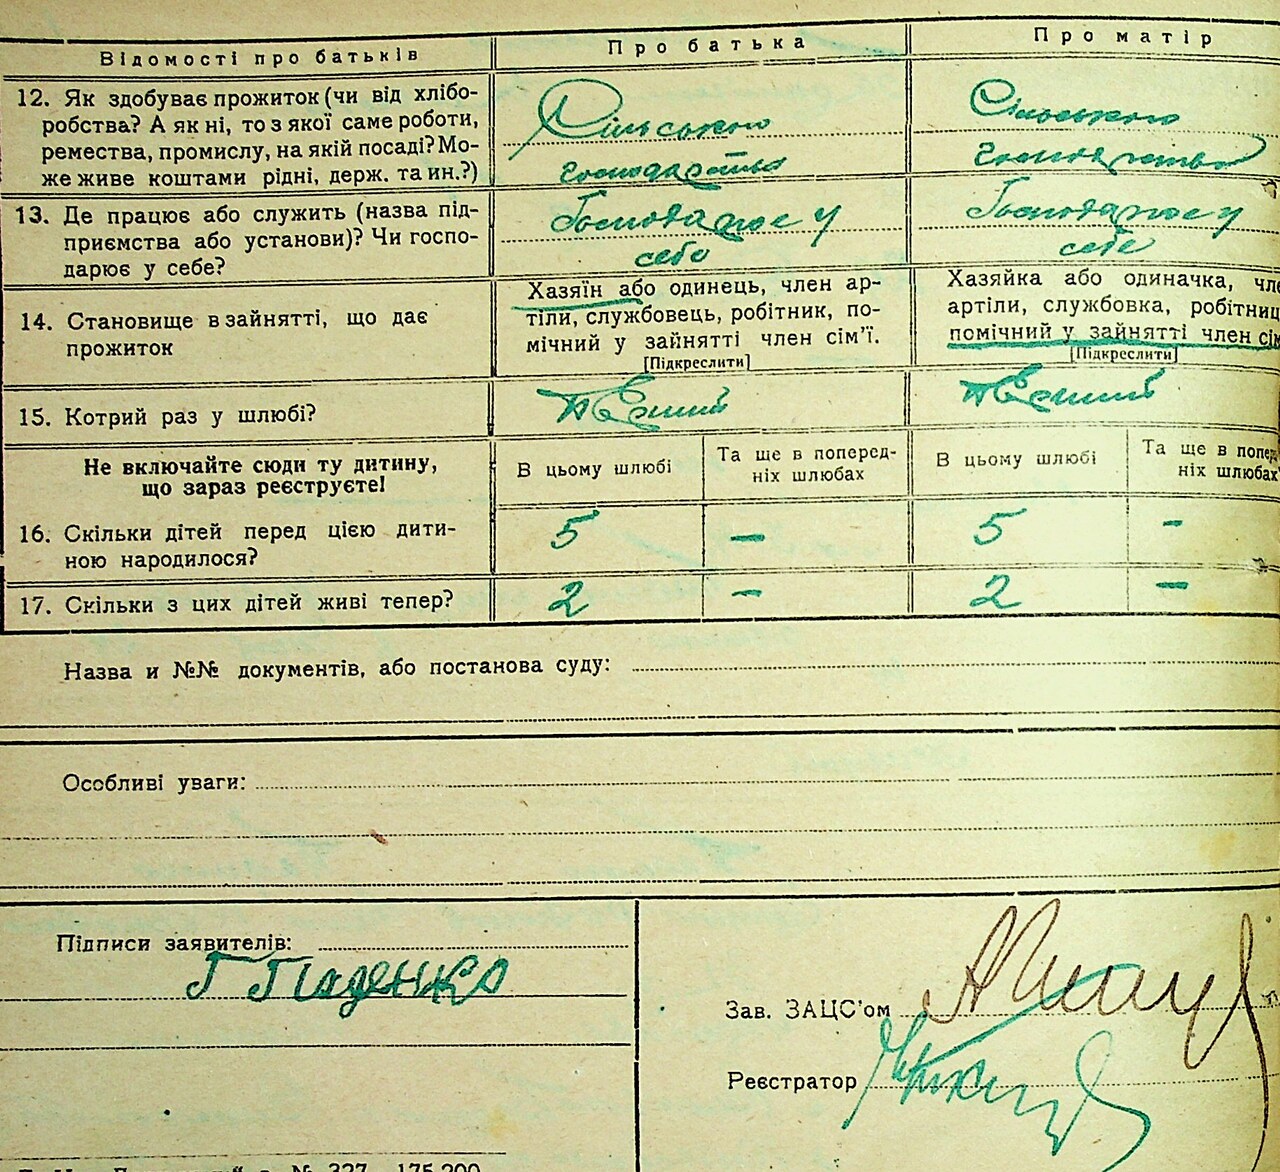 Відомості про батьків
Про батька
Про матір
12. Як здобуває прожиток (чи від хлібо-
робства? А як ні, то з якої саме роботи,
ремества, промислу, на якій посаді? Мо-
же живе коштами рідні, держ. та ин.?)
Сільського
господарства
Сільського
господарства
13. Де працює або служить (назва під-
приємства або установи)? Чи госпо-
дарює у себе?
Господарює у
себе
Господарює у
себе
14. Становище в зайнятті, що дає
прожиток
Хазяїн або одинець, член ар-
тіли, службовець, робітник, по-
мічний у зайнятті член сім'ї.
[Підкреслити]
Хазяйка або одиначка, чле
артіли, службовка, робітниц
помічний у зайнятті член сім
[Підкреслити]
15. Котрий раз у шлюбі?
Не включайте сюди ту дитину,
що зараз реєструєте!
В цьому шлюбі
Та ще в поперед-
ніх шлюбах
В цьому шлюбі
Та ще в попед
ніх шлюбах
16. Скільки дітей перед цією дити-
ною народилося?
5 – 5 -
17. Скільки з цих дітей живі тепер?
2 - 2 –
Назва и №№ документів, або постанова суду:
Особливі уваги:
Підписи заявителів:
Зав. ЗАЦС'ом
Реєстратор
№ 327 175.200